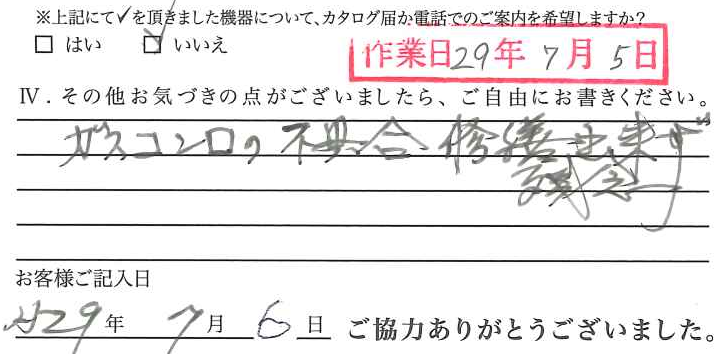 ※上記にて✓を頂きました機器について、カタログ届か電話でのご案内を希望しますか?
□ はい ☑ いいえ
作業日 29年 7月 5日
Ⅳ．その他お気づきの点がございましたら、ご自由にお書きください。
ガスコンロの不具合 修繕出来ず
残念
お客様ご記入日
H29年 7月 6日 ご協力ありがとうございました。